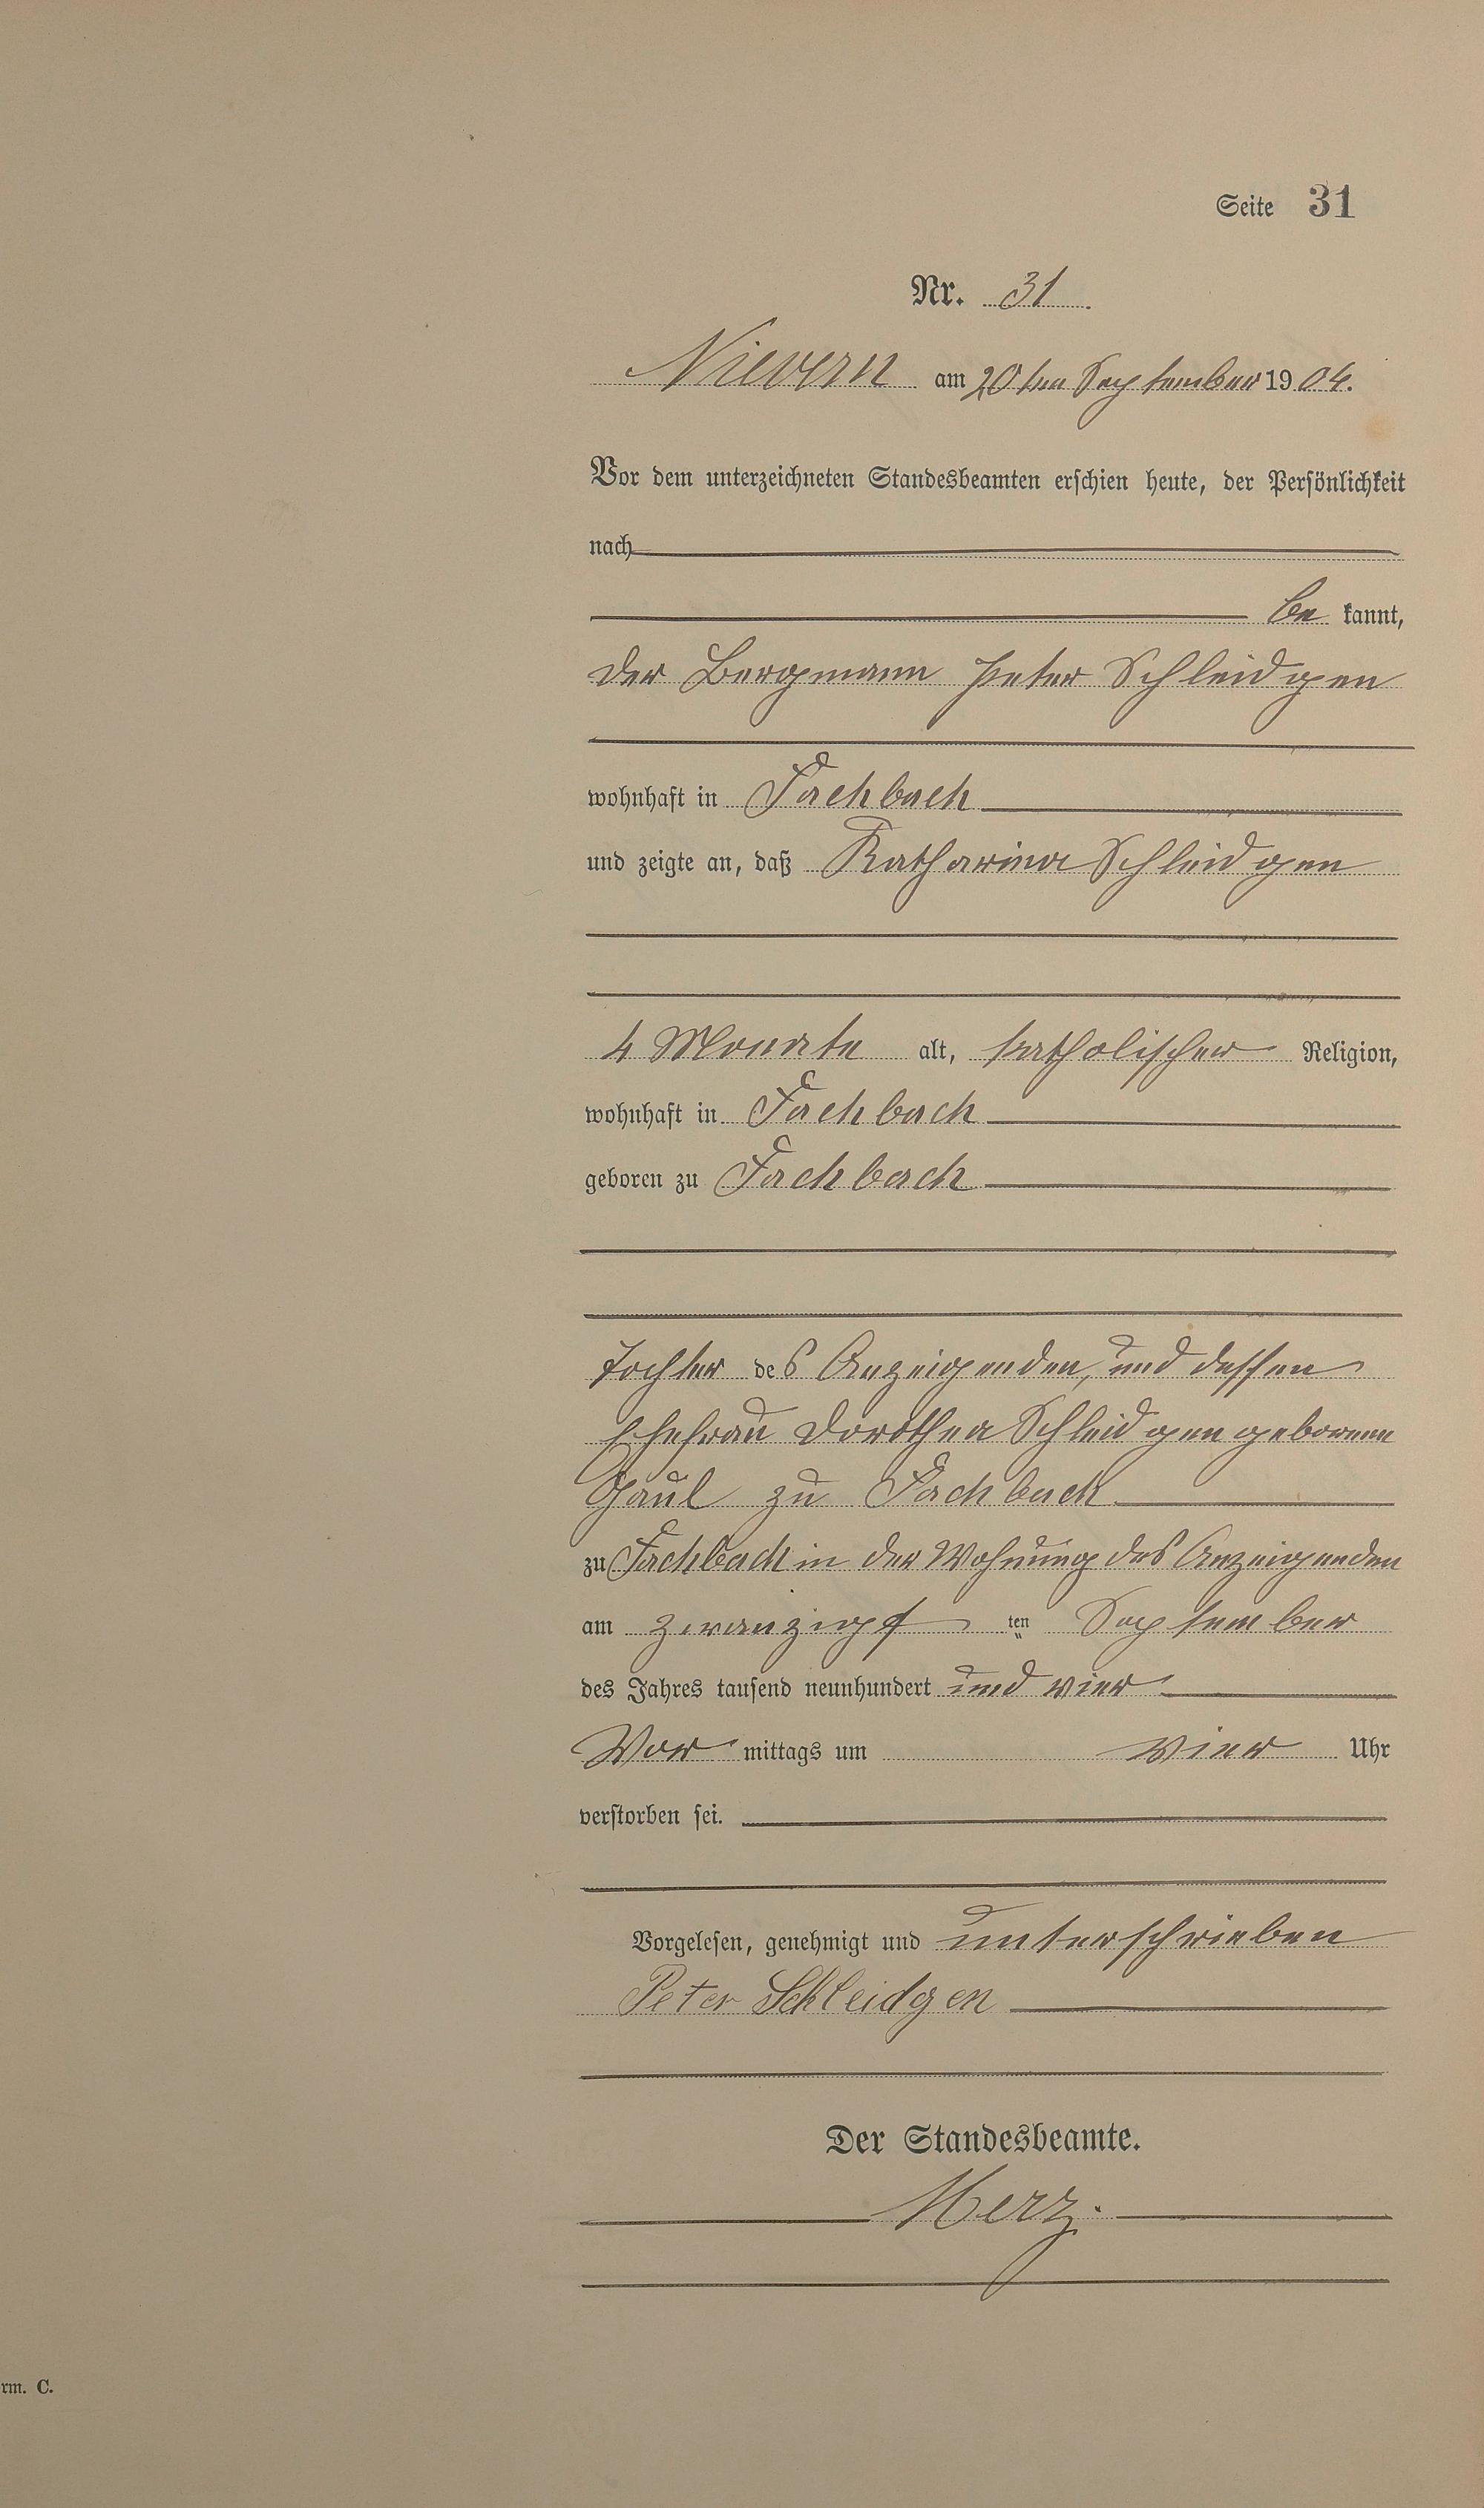 Seite 31
Nr. 31
Nievern am 20ten September 1904.
Vor dem unterzeichneten Standesbeamten erschien heute, der Persönlichkeit
nach
be kannt,
der Bergmann Peter Schleidgen
wohnhaft in Fachbach
und zeigte an, daß Katharina Schleidgen
4 Monate alt, katholischer Religion,
wohnhaft in Fachbach
geboren zu Fachbach
Tochter des Anzeigenden, und dessen
Ehefrau Dorothea Schleidgen geborene
Gaul zu Fachbach
zu Fachbach in der Wohnung des Anzeigenden
am zwanzigst ten September
des Jahres tausend neunhundert und vier
Vor mittags um vier Uhr
verstorben sei.
Vorgelesen, genehmigt und unterschrieben
Peter Schleidgen
Der Standesbeamte.
Merz.
rm. C.